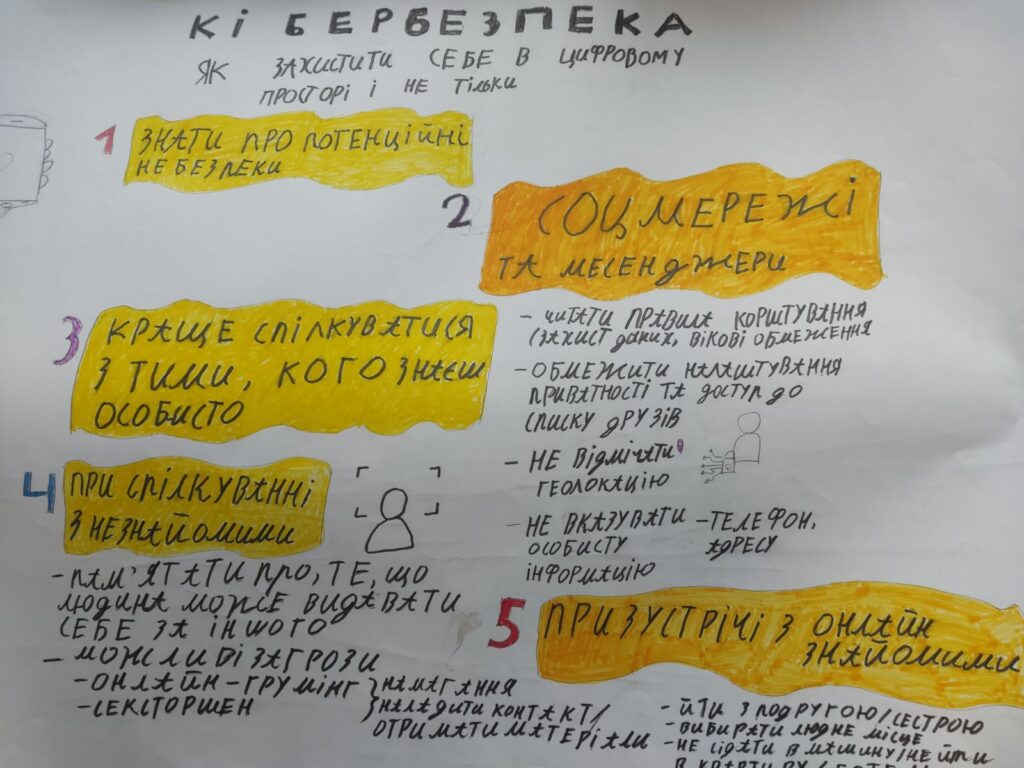 КІБЕРБЕЗПЕКА
ЯК ЗАХИСТИТИ СЕБЕ В ЦИФРОВОМУ
ПРОСТОРІ І НЕ ТІЛЬКИ
1 ЗНАТИ ПРО ПОТЕНЦІЙНІ
НЕБЕЗПЕКИ
2 СОЦМЕРЕЖІ
ТА МЕСЕНДЖЕРИ
- ЧИТАТИ ПРАВИЛА КОРШТУВАННЯ
(ЗАХИСТ ДАНИХ, ВІКОВІ ОБМЕЖЕННЯ
- ОБМЕЖИТИ НАЛАШТУВАННЯ
ПРИВАТНОСТІ ТА ДОСТУП ДО
СПИСКУ ДРУЗІВ
- НЕ ВІДМІЧАТИ
ГЕОЛОКАЦІЮ
- НЕ ВКАЗУВАТИ - ТЕЛЕФОН,
ОСОБИСТУ АДРЕСУ
ІНФОРМАЦІЮ
3 КРАЩЕ СПІЛКУВАТИСЯ
З ТИМИ, КОГО ЗНАЄШ
ОСОБИСТО
4 ПРИ СПІЛКУВАННІ
З НЕЗНАЙОМИМИ
- ПАМ'ЯТАТИ ПРО, ТЕ, ЩО
ЛЮДИНА МОЖЕ ВИДАВАТИ
СЕБЕ ЗА ІНШОГО
- МОЖЛИВІ ЗАГРОЗИ
- ОНЛАЙН-ГРУМІНГ } НАМАГАННЯ
- СЕКСТОРШЕН НАЛАДИТИ КОНТАКТ/
ОТРИМАТИ МАТЕРІАЛИ
5 ПРИ ЗУСТРІЧІ З ОНЛАЙН
ЗНАЙОМИМИ
- ЙТИ З ПОДРУГОЮ/СЕСТРОЮ
- ВИБИРАТИ ЛЮДНЕ МІСЦЕ
- НЕ СІДАТИ В МАШИНУ/НЕ ЙТИ
В КВАРТИРУ/